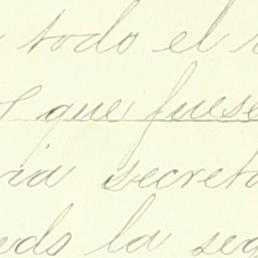 todo el
que fuese
ria secreta
do la seg